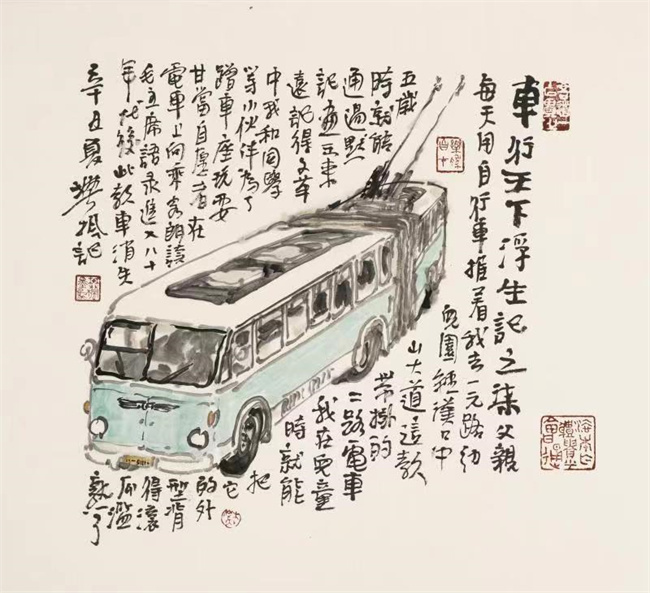 車行天下浮生記之柒父親
每天用自行車推着我去一元路幼
兒園經漢口中
山大道這款
帶拗的
二路電車
我在兒童
時就能
把
它
的外
型背
得滾
瓜爛
熟了
五歲
時就能
通過默
記畫出來
還記得文革
中我和同學
等小伙伴为了
蹭車座玩耍
甘當自愿者在
電車上向乘客朗讀
毛主席語录進入八十
年代後此款車消失
辛丑夏樊楓記